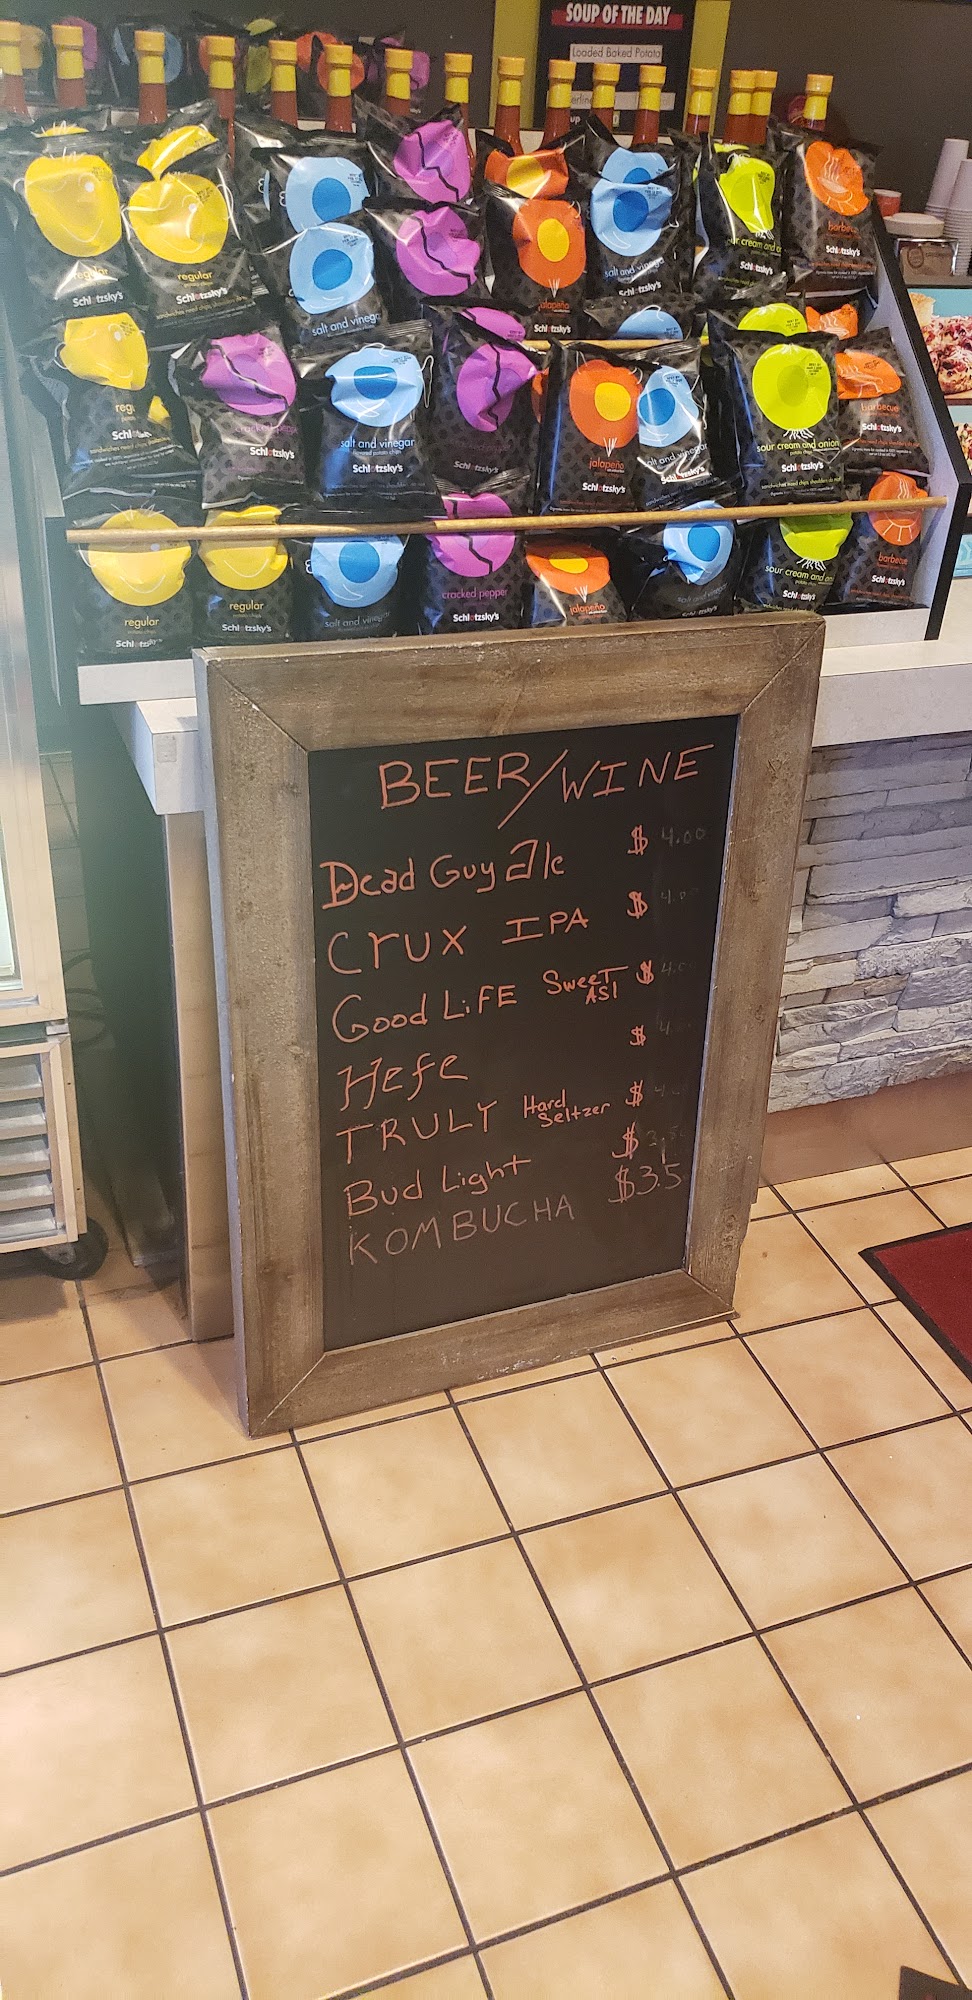 SOUP OF THE DAY
Loaded Baked Potato
regular
Schlotzsky's
regular
Schlotzsky's
salt and vinegar
jalapeño
Schlotzsky's
salt and vinegar
sour cream and o
barbecue
Schlotzsky's
cracked pepper
Schlotzsky's
salt and vinegar
flavored potato chips
Schlotzsky's
jalapeño
Schlotzsky's
salt and vinegar
Schlotzsky's
sour cream and onion
potato chips
Schlotzsky's
barbecue
Schlotzsky's
regular
potato chips
Schlotzsky's
regular
potato chips
Schlotzsky's
salt and vinegar
cracked pepper
Schlotzsky's
jalapeño
sour cream and oni
Schlotzsky's
barbecue
Schlotzsky's
BEER/WINE
Dead Guy Ale $ 4.00
Crux IPA $ 4.0
Good LiFE SweeT AS! $ 4.0
Hefe $ 4
TRULY Hard Seltzer $ 4
Bud Light $ 3.5
KOMBUCHA $3.5